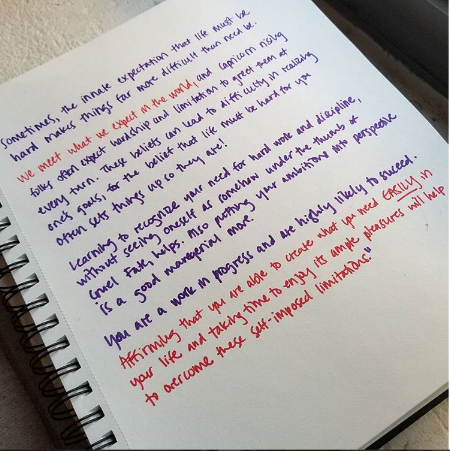 Sometimes, the innate expectation that life must be
hard makes things far more difficult than need be.
We meet what we expect in the world, and Capricorn rising
folks often expect hardship and limitation to greet them at
every turn. These beliefs can lead to difficulty in realizing
one's goals, for the belief that life must be hard for you
often sets things up so they are!
Learning to recognize your need for hard work and discipline,
without seeing oneself as somehow under the thumb of
cruel fate, helps. Also putting your ambitions into perspective
is a good managerial move.
You are a work in progress and are highly likely to succeed.
Affirming that you are able to create what you need EASILY in
your life and taking time to enjoy its simple pleasures will help
to overcome these self-imposed limitations."